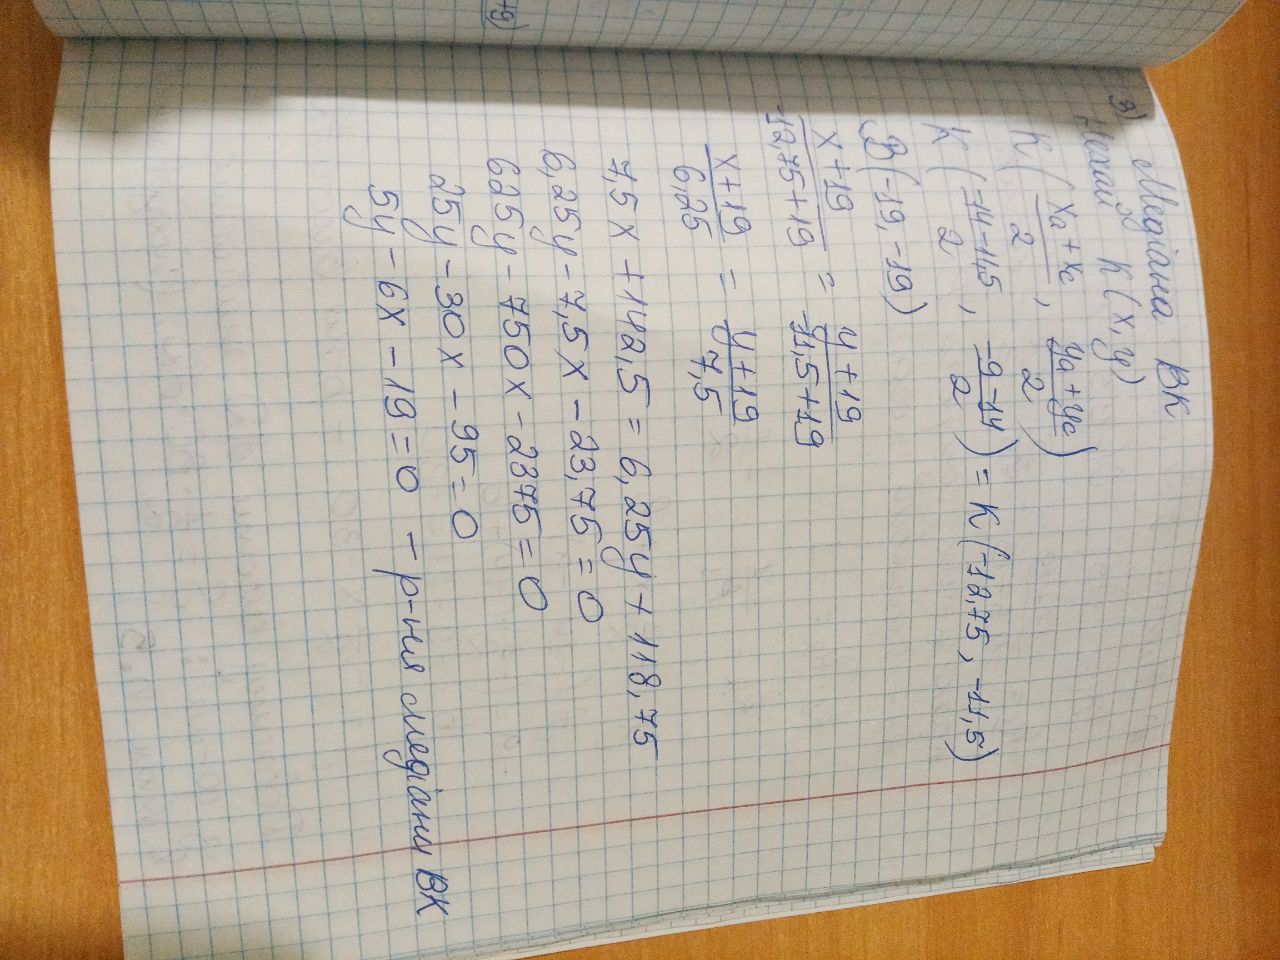 3) Медіана ВК
Нехай К(х, у)
К((xa + xc)/2, (ya + yc)/2)
К((-14-11,5)/2, (-9-14)/2) = К(-12,75, -11,5)
В(-19, -19)
(x+19)/(-12,75+19) = (y+19)/(-11,5+19)
(x+19)/6,25 = (y+19)/7,5
7,5x + 142,5 = 6,25y + 118,75
6,25y - 7,5x - 23,75 = 0
625y - 750x - 2375 = 0
25y - 30x - 95 = 0
5y - 6x - 19 = 0 - р-ня медіани ВК
+9)